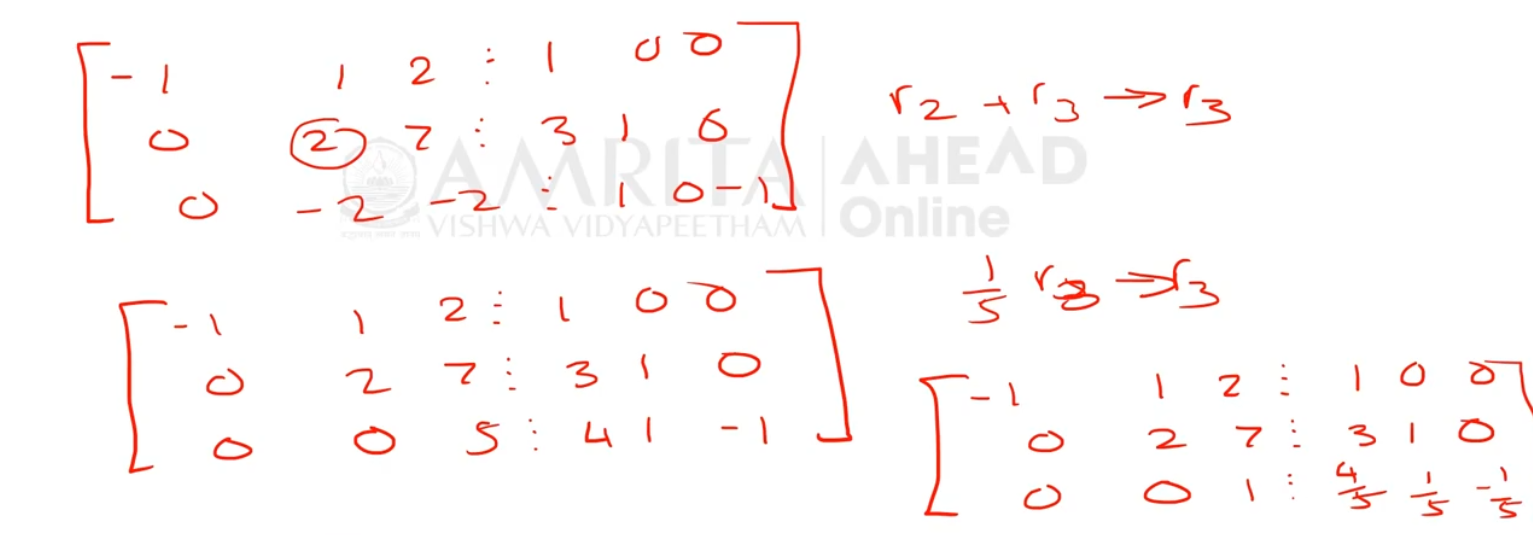 -1 1 2 ⋮ 1 0 0
0 2 7 ⋮ 3 1 0
0 -2 -2 ⋮ 1 0 -1
r2 + r3 → r3
AMRITA AHEAD
VISHWA VIDYAPEETHAM Online
-1 1 2 ⋮ 1 0 0
0 2 7 ⋮ 3 1 0
0 0 5 ⋮ 4 1 -1
1/5 r3 → r3
-1 1 2 ⋮ 1 0 0
0 2 7 ⋮ 3 1 0
0 0 1 ⋮ 4/5 1/5 -1/5